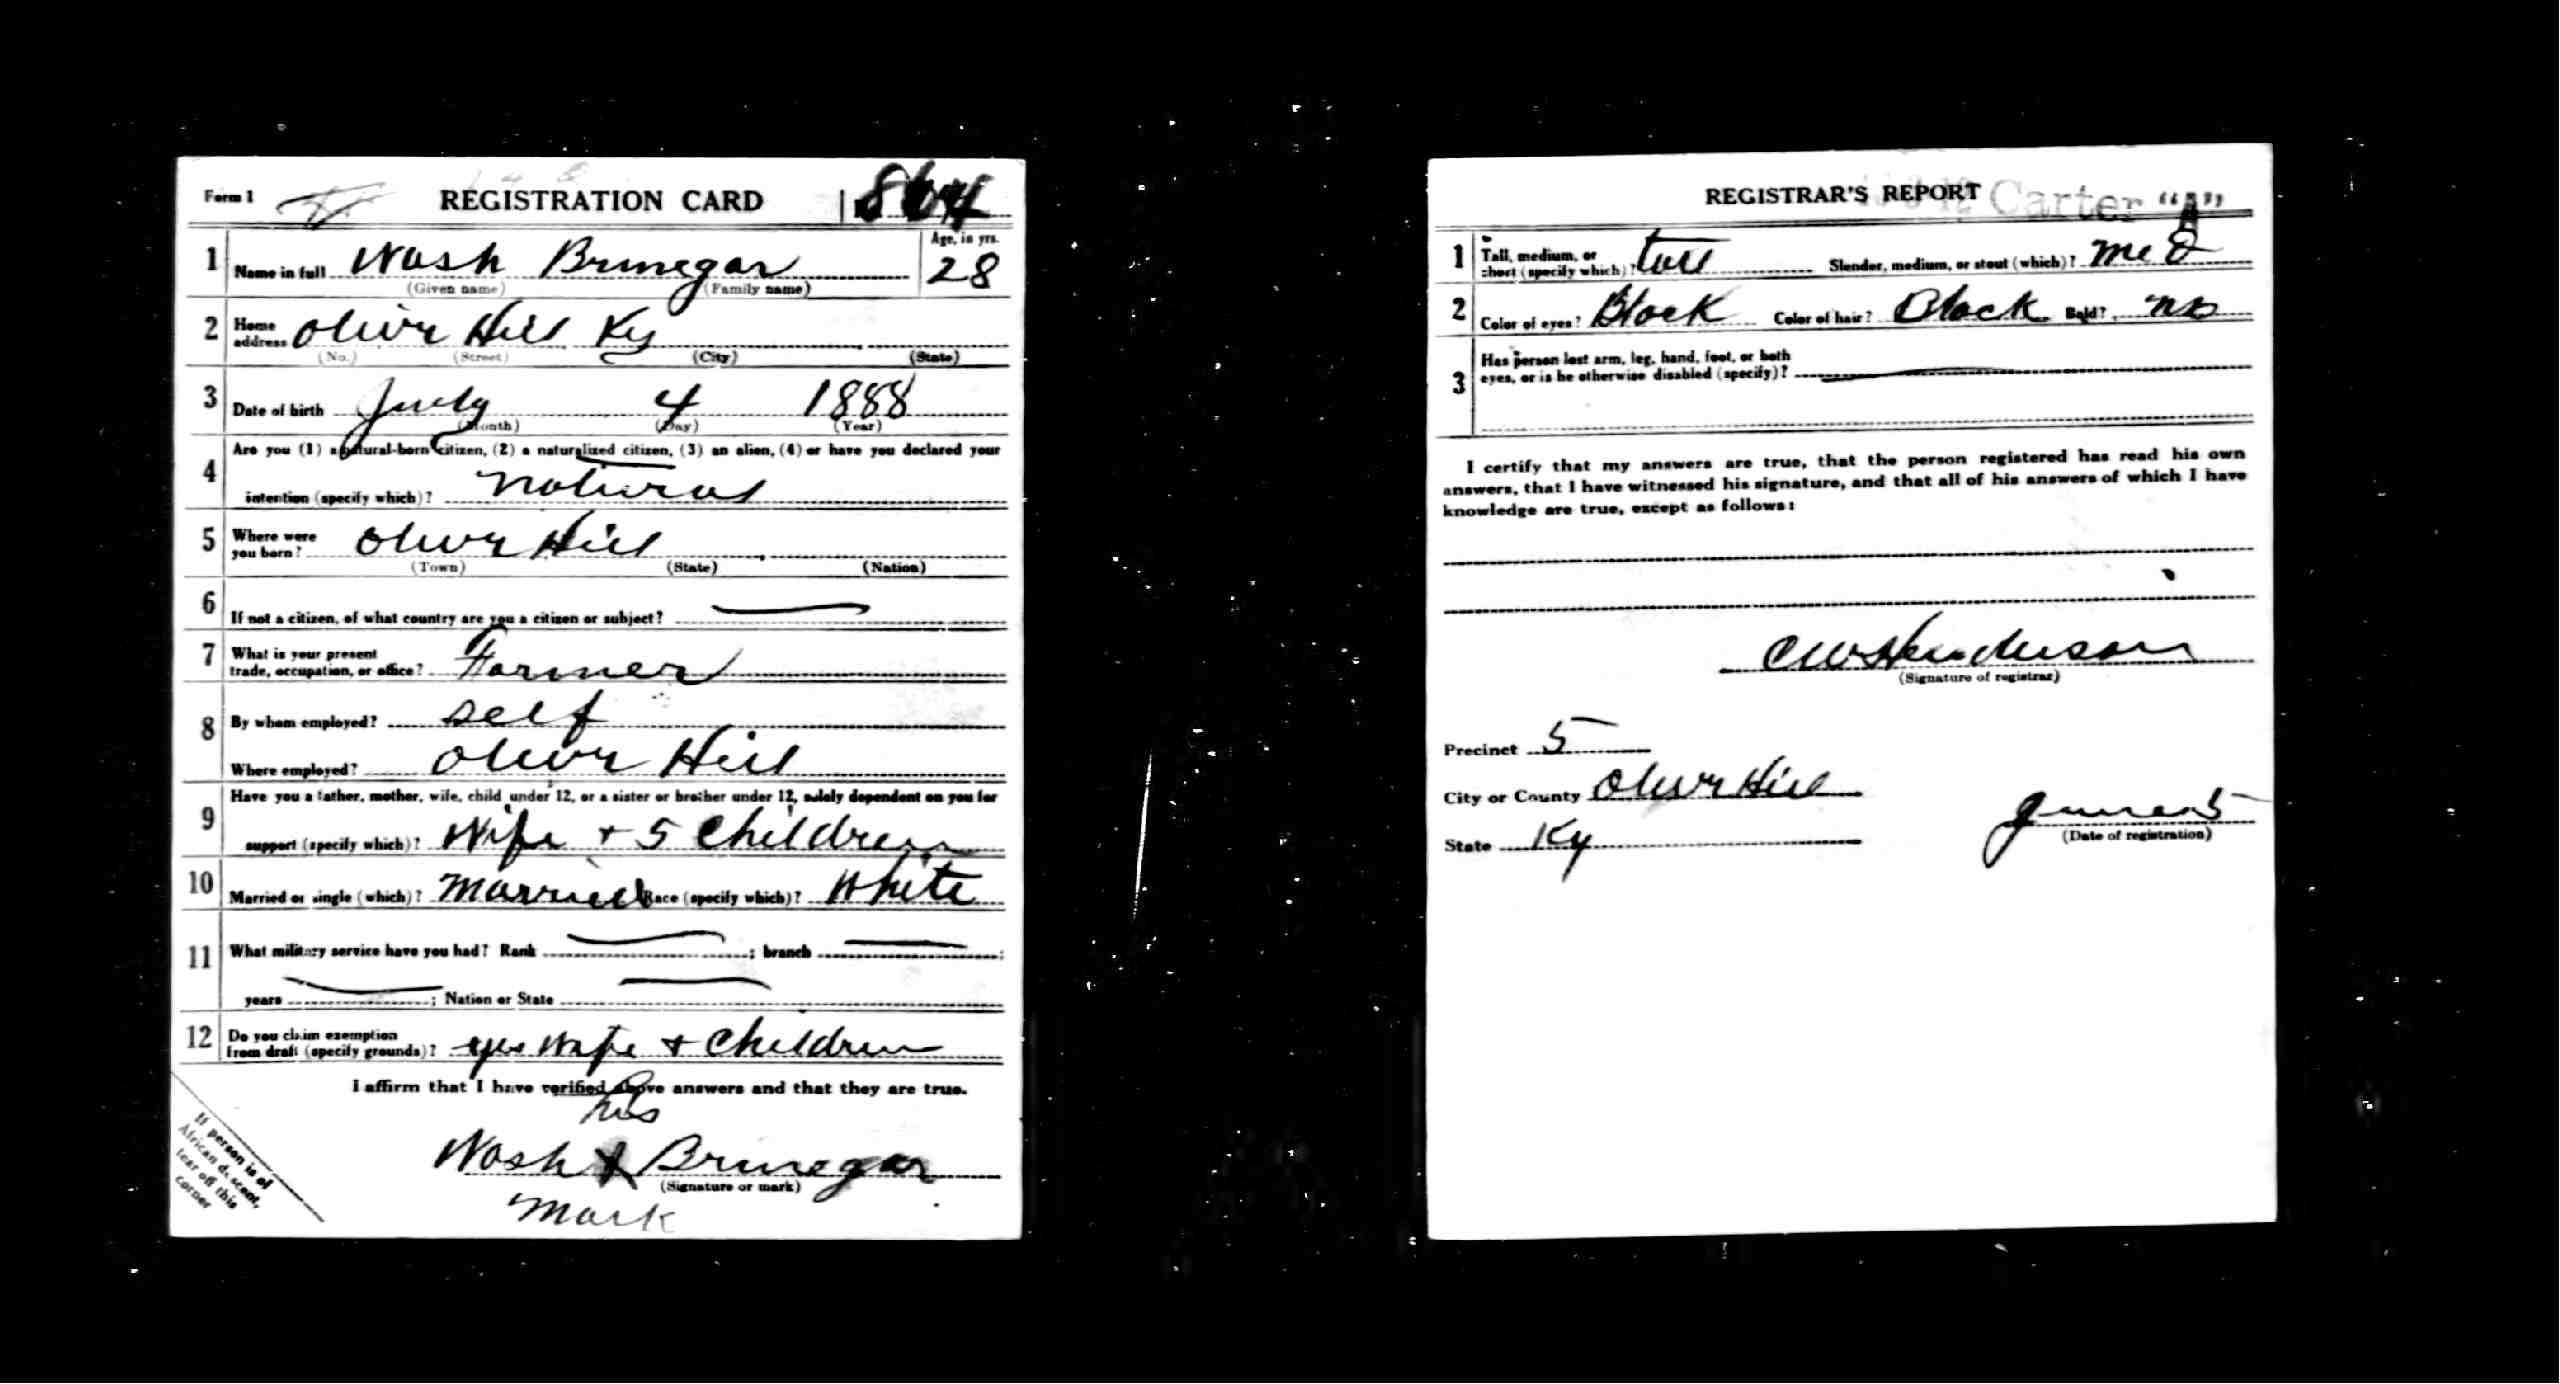 Form 1
REGISTRATION CARD
1 Name in full Wash Brunegar Age, in yrs. 28
(Given name) (Family name)
2 Home address Olive Hill Ky
(No.) (Street) (City) (State)
3 Date of birth July 4 1888
(Month) (Day) (Year)
Are you (1) a natural-born citizen, (2) a naturalized citizen, (3) an alien, (4) or have you declared your
4 intention (specify which)? natural
5 Where were you born? Olive Hill
(Town) (State) (Nation)
6 If not a citizen, of what country are you a citizen or subject?
7 What is your present
trade, occupation, or office? Farmer
8 By whom employed? self
Where employed? Olive Hill
Have you a father, mother, wife, child under 12, or a sister or brother under 12, solely dependent on you for
9 support (specify which)? Wife + 5 Children
10 Married or single (which)? Married Race (specify which)? White
11 What military service have you had? Rank ; branch ;
years ; Nation or State
12 Do you claim exemption
from draft (specify grounds)? yes Wife + Children
I affirm that I have verified above answers and that they are true.
his
Wash X Brunegar
(Signature or mark)
mark
If person is of
African descent,
tear off this
corner
REGISTRAR'S REPORT Carter "A"
1 Tall, medium, or
short (specify which)? tall Slender, medium, or stout (which)? med
2 Color of eyes? Black Color of hair? Black Bald? no
Has person lost arm, leg, hand, foot, or both
3 eyes, or is he otherwise disabled (specify)?
I certify that my answers are true, that the person registered has read his own
answers, that I have witnessed his signature, and that all of his answers of which I have
knowledge are true, except as follows:
C W Henderson
(Signature of registrar)
Precinct 5
City or County Olive Hill
State Ky
June 5
(Date of registration)